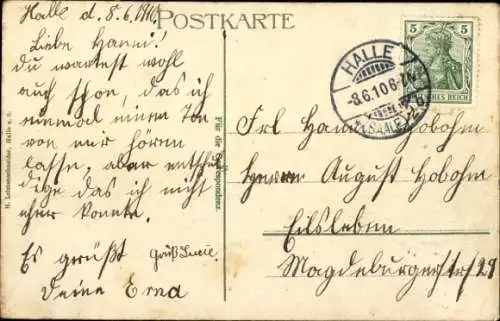 Halle d. 8.6.1910.
POSTKARTE
Liebe Hanni!
du wartest wohl
auch schon, das ich
einmal einen Ton
von mir hören
lasse, aber entschul
dige das ich nicht
eher konnte.
Es grüßt Gruß Lucie.
deine Erna
Für die Correspondenz.
5 5
DEUTSCHES REICH
HALLE
-8.6.10 6-7N.
* (SAALE) 2
Frl Hanni Hobohm
Herrn August Hobohm
Eilsleben
Magdeburgerstr 29